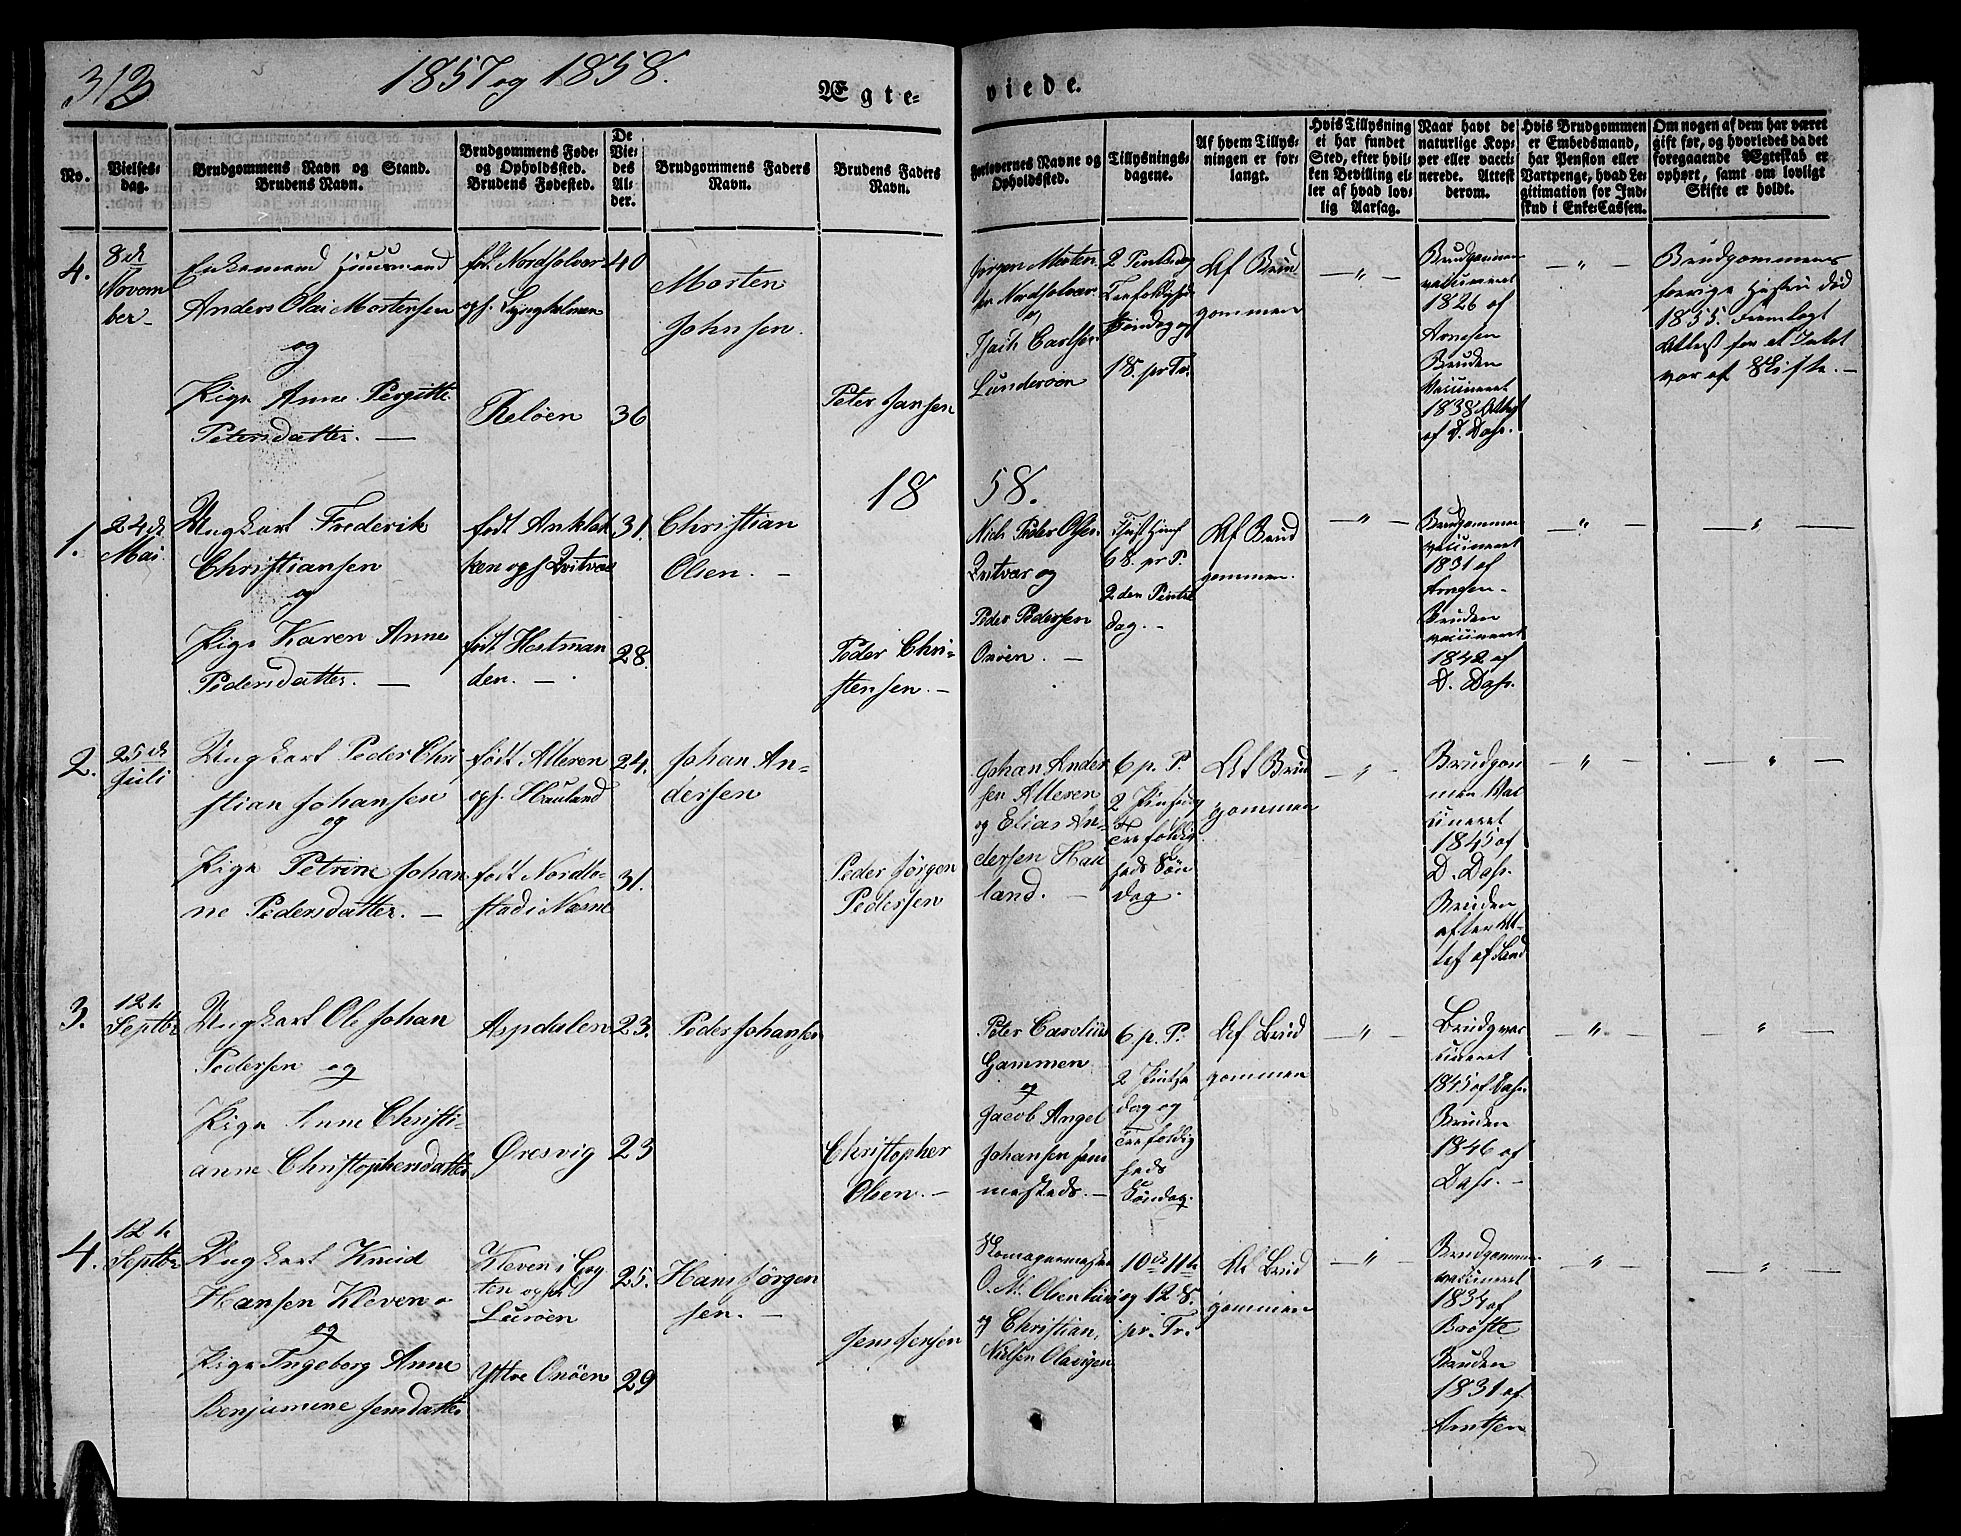 313
1857 og 1858.
Ægte-
viede.
No.
Vielses-
dag.
Brudgommens Navn og Stand.
Brudens Navn.
Brudgommens Føde-
og Opholdssted.
Brudens Fødested.
De
Vie-
des
Al-
der.
Brudgommens Faders
Navn.
Brudens Faders
Navn.
Forlovernes Navne og
Opholdssted.
Tillysnings-
dagene.
Af hvem Tillys-
ningen er for-
langt.
Hvis Tillysning
ei har fundet
Sted, efter hvil-
ken Bevilling el-
ler af hvad lov-
lig Aarsag.
Naar havt de
naturlige Kop-
per eller vacci-
nerede. Attest
derom.
Hvis Brudgommen
er Embedsmand,
har Pension eller
Vartpenge, hvad Le-
gitimation for Ind-
skud i Enke-Cassen.
Om nogen af dem har været
gift før, og hvorledes da det
foregaaende Ægteskab er
ophørt, samt om lovligt
Skifte er holdt.
4.
8de
Novem
ber
Enkemand Huusmand
Anders Olai Mortensen
og
Pige Anne Pergitte
Petersdatter. —
fød. Nordsolvær
ops.
Reløen
40
36
Morten
Johnsen.
Peter Jansen
Jørgen Morten
sen Nordsolvær
og
Carlsen
Lunderøen
2 Pintsedag
Trefoldighed
Søndag og
18. p. Tr.
Af Brud
gommen
— " —
Brudgommen
vaccineret
1826 af
Arnesen
Bruden
vaccineret
1838 Attest
af D. Dass.
— " —
Brudgommens
forrige Hustru død
1855. Fremlagt
Attest for at Intet
var at Skifte. —
18
58.
1.
24de
Mai.
Ungkarl Frederik
Christiansen
og
Pige Karen Anne
Pedersdatter. —
født Anklak
ken ops. Qvitvær
født Hestman
den. —
31.
28.
Christian
Olsen. —
Peder Chri-
stensen. —
Nich. Peder Olsen
Qvitvær og
Peder Pedersen
Onøen. —
6 S. p. P.
2den Pintse
dag. —
Af Brud
gommen.
— " —
Brudgommen
vaccineret
1831 af
Arnesen
Bruden
vaccineret
1842 af
D. Dass.
— " —
— " —
2.
25de
Juli
Ungkarl Peder Chri
stian Johansen
og
Pige Petrine Johan
ne Pedersdatter. —
født Alteren
ops. Hauland
født Nordlo-
stad i Næsne
24.
31.
Johan An-
dersen
Peder Jørgen
Pedersen
Johan Ander
sen Alteren
og Elias An-
dersen Hau
land. —
6 p. P.
2 Pintsedag
og
Trefoldig
heds Søn
dag.
Af Brud
gommen
— " —
Brudgom
men Vac
cineret
1845 af
D. Dass.
Bruden
efter At-
test af Lund
— " —
— " —
3.
12te
Septbr
Ungkarl Ole Johan
Pedersen og
Pige Anne Christi-
anne Christophersdatter
Aspdalen
Øresvig
23.
23
Peder Johansen
Christopher
Olsen. —
Peter Carolius
Gammen
og
Jacob Angel
Johansen Sem
mestads. —
6. p. P.
2 Pintse
dag og
Trefoldig
heds
Søndag.
Af Brud
gommen
— " —
Brudg. vac
cineret
1845 af Dass
Bruden
1846 af
Dass. —
— " —
— " —
4.
12te
Septbr
Ungkarl Knud
Hansen Kleven
og
Pige Ingeborg Anne
Benjamine Jensdatter
Kleven i
ten ops.
Lurøen
Yttre Onøen
25.
29
Hans Jørgen
sen. —
Jens Jensen
Skomagermester
O. M. Olsen
og Christian
Nielsen
10de 11te
og 12 S.
p. Tr.
Af Brud
gommen
— " —
Brudgommen
vaccineret
1834 af
Brøste
Bruden
1831 af
Arntsen
— " —
— " —